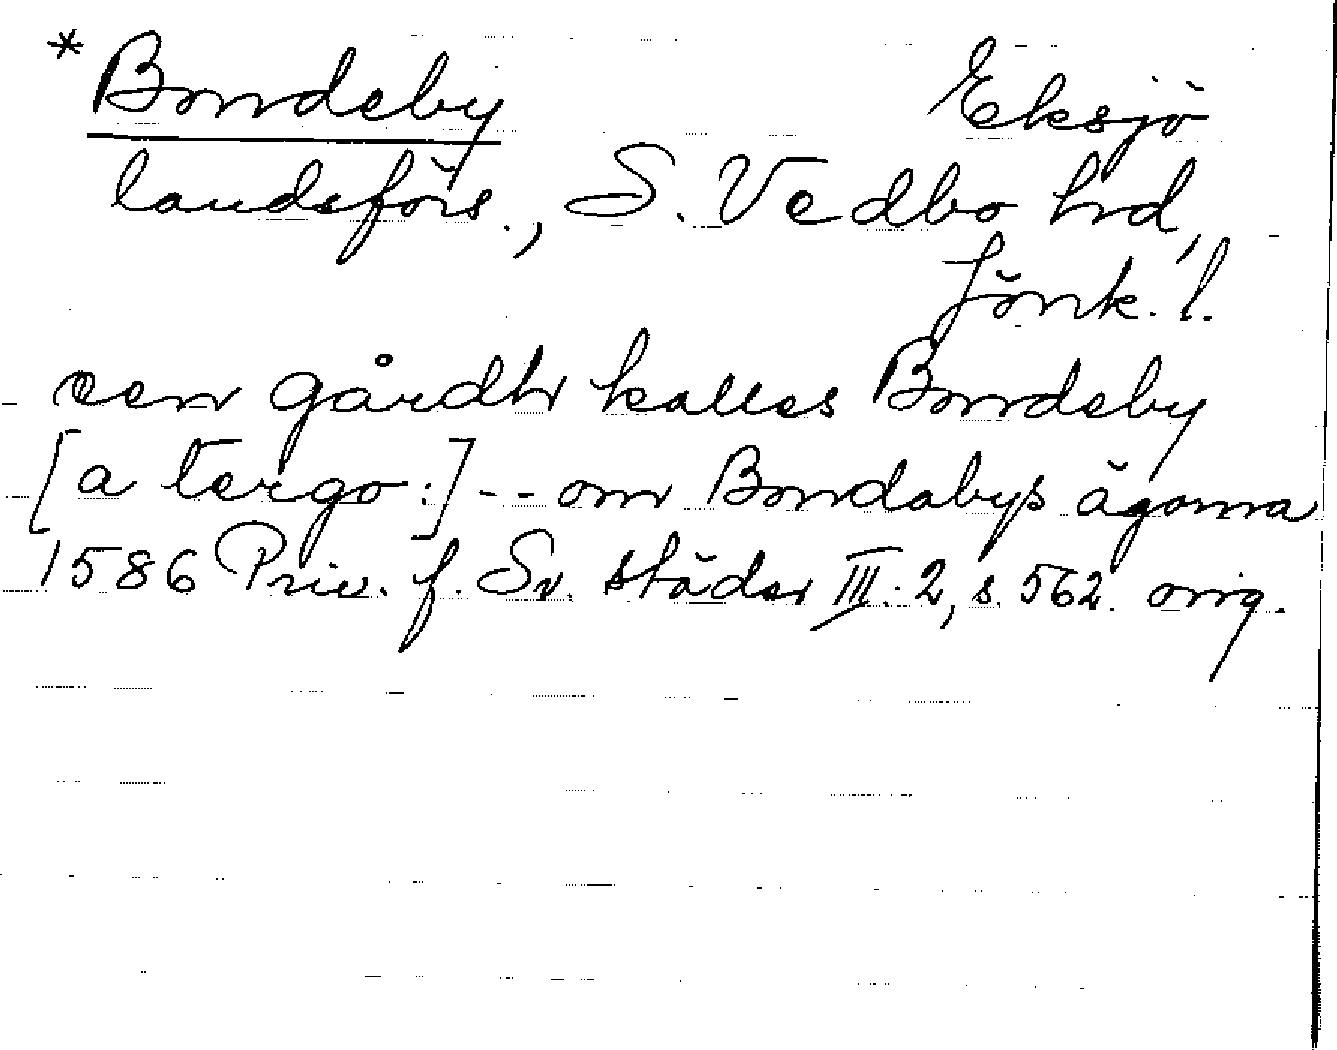 *Bondeby Eksjö
landsförs., S. Vedbo hd,
Jönk. l.
een gårdh kalles Bondeby
[a tergo:] - - om Bondabys ägorna
1586 Priv. f. Sv. städer III: 2, s. 562. orig.